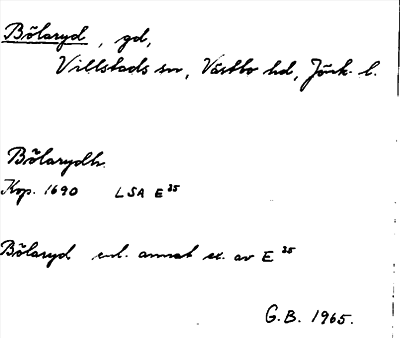 Bölaryd, gd,
Villstads sn, Västbo hd, Jönk. l.
Bölarydh.
Kop. 1690 LSA E 25
Bölaryd enl. annat ex. av E 25
G.B. 1965.